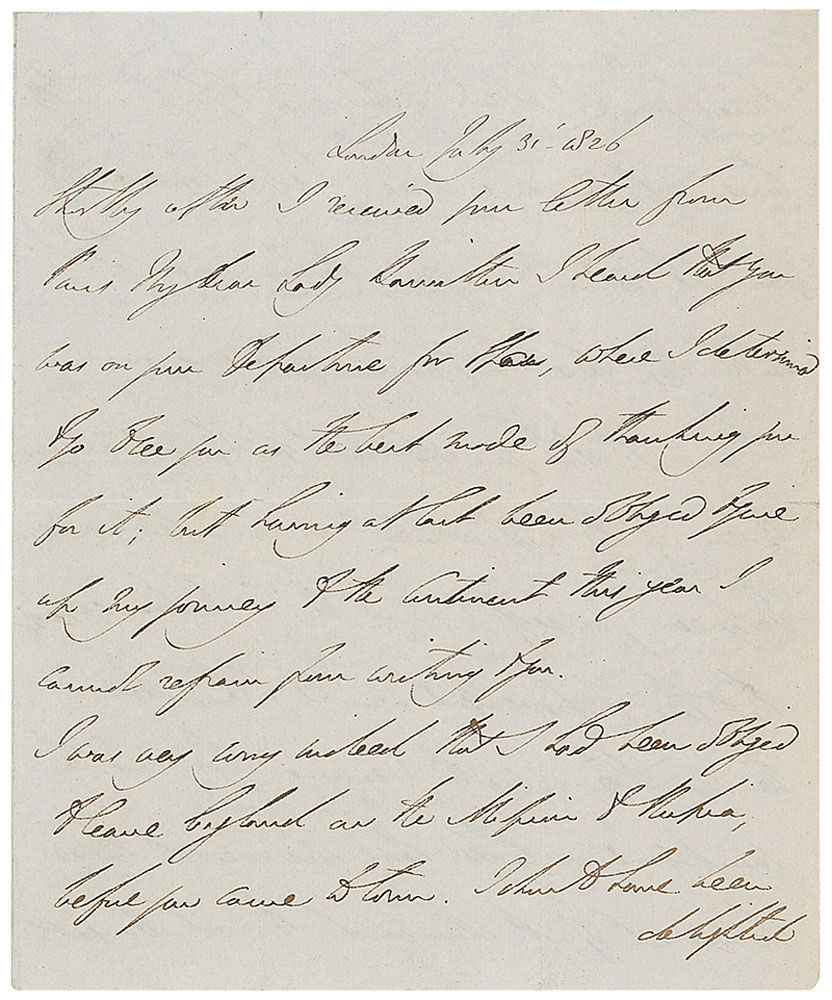 London July 31st 1826
Shortly after I received your letter from
Paris My dear Lady Hamilton I heard that you
was on your departure for Spa, where I determined
to see you as the best mode of thanking you
for it; but having at last been obliged to give
up my journey to the Continent this year I
cannot refrain from writing to you.
I was very sorry indeed that I had been obliged
to leave England on the Mission to Russia,
before you came to town. I should have been
delighted